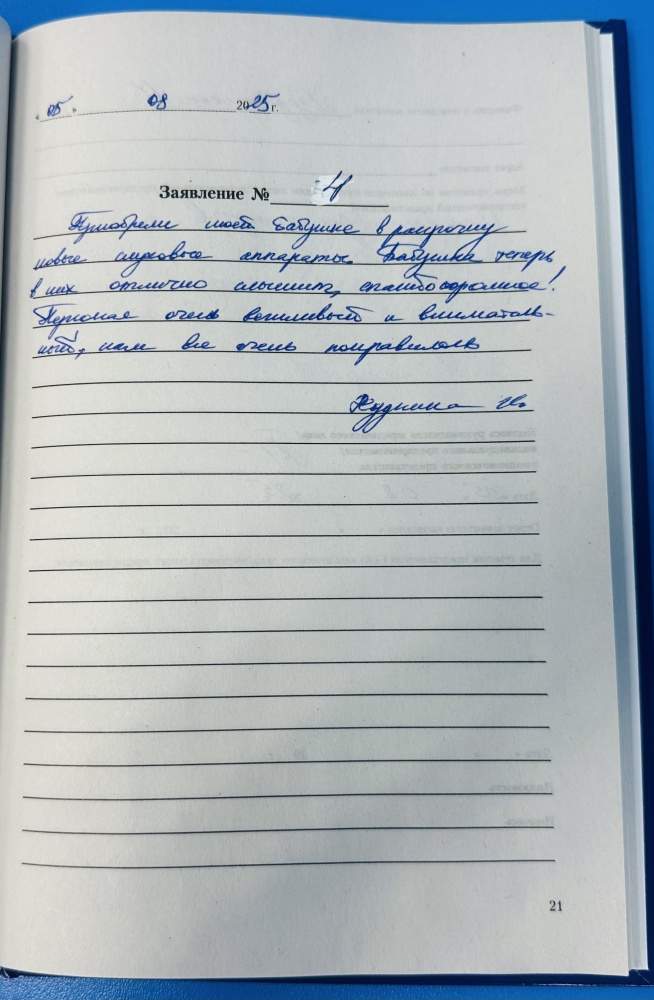 « 05 » 08 2025 г.
Заявление № 4
Приобрели моей бабушке в рассрочку
новые слуховые аппараты. Бабушка теперь
в них отлично слышит, спасибо огромное!
Персонал очень вежливый и вниматель-
ный, нам все очень понравилось
21